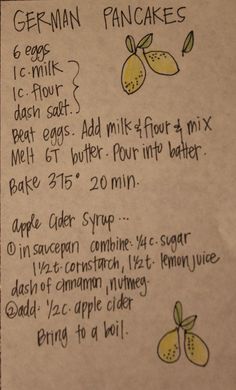 GERMAN PANCAKES
6 eggs
1 c. milk
1 c. flour
dash salt.
Beat eggs. Add milk & flour & mix
Melt 6T butter. Pour into batter.
Bake 375° 20 min.
apple cider syrup...
① in saucepan combine: 1/4 c. sugar
1 1/2 t. cornstarch, 1 1/2 t. lemon juice
dash of cinnamon, nutmeg.
② add: 1/2 c. apple cider
Bring to a boil.